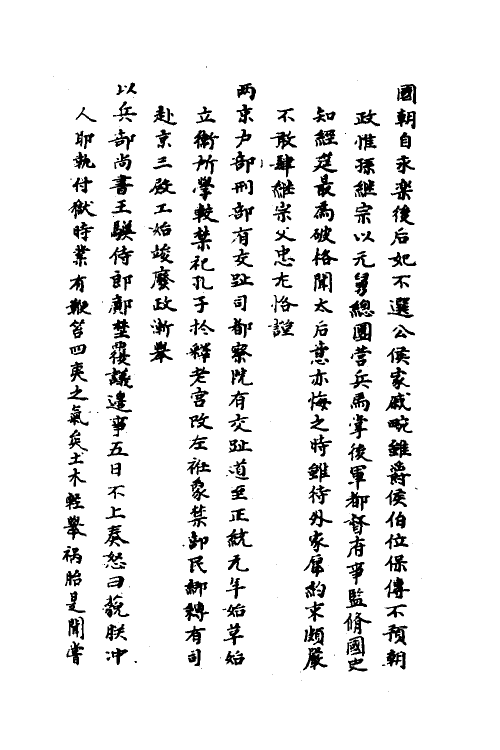 國朝自永樂後后妃不選公侯家戚畹雖爵侯伯位保傅不預朝
政惟孫継宗以元舅總團营兵馬掌後軍都督府亊監脩國史
知經筵最為破格聞太后意亦悔之時雖待外家屬約束頗嚴
不敢肆継宗父忠尢恪謹
两京户部刑部有交趾司都察院有交趾道至正統元年始革始
立衛所學較禁祀孔子扵釋老宮改左袵象禁邮民綁轉有司
赴京三殿工始竣廢政漸舉
以兵部尚書王驥侍郎鄺埜覆議邉亊五日不上奏怒曰藐朕冲
人耶執付獄時業有鞭笞四夷之氣矣土木輕舉禍胎是聞嘗